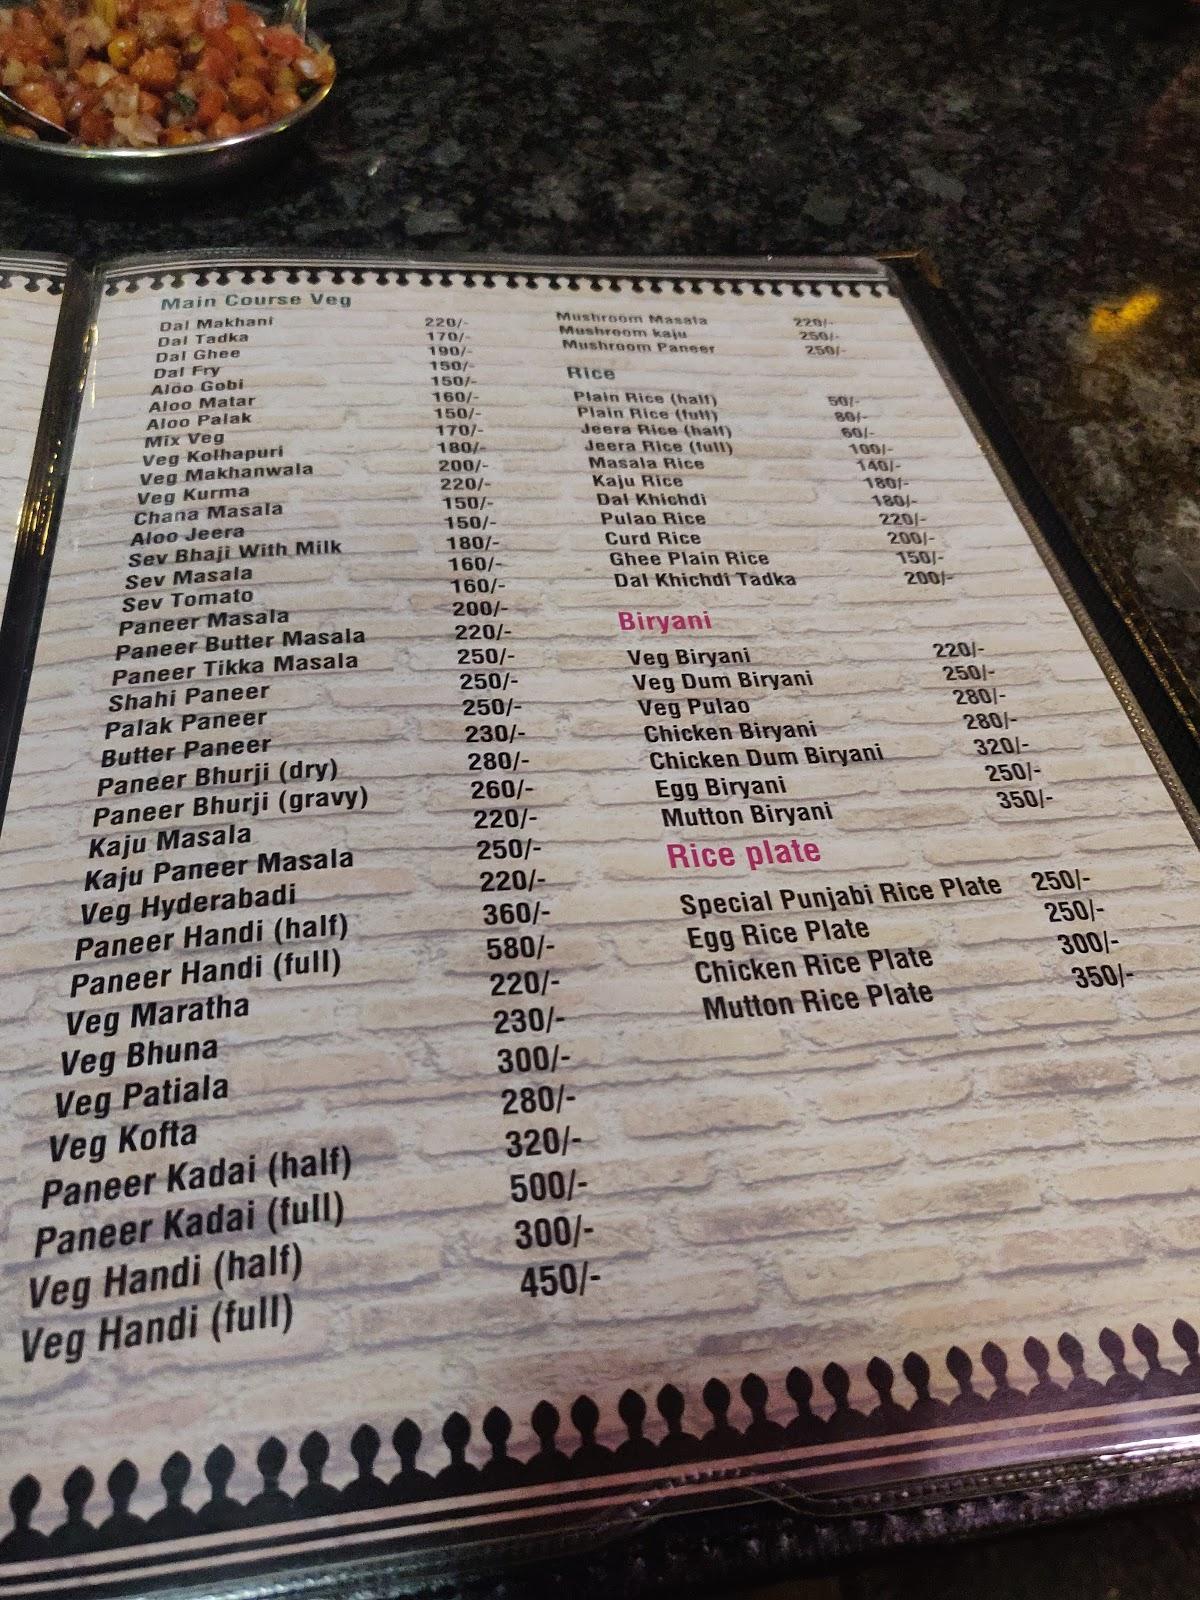 Main Course Veg
Dal Makhani 220/-
Dal Tadka 170/-
Dal Ghee 190/-
Dal Fry 150/-
Aloo Gobi 150/-
Aloo Matar 160/-
Aloo Palak 150/-
Mix Veg 170/-
Veg Kolhapuri 180/-
Veg Makhanwala 200/-
Veg Kurma 220/-
Chana Masala 150/-
Aloo Jeera 150/-
Sev Bhaji With Milk 180/-
Sev Masala 160/-
Sev Tomato 160/-
Paneer Masala 200/-
Paneer Butter Masala 220/-
Paneer Tikka Masala 250/-
Shahi Paneer 250/-
Palak Paneer 250/-
Butter Paneer 230/-
Paneer Bhurji (dry) 280/-
Paneer Bhurji (gravy) 260/-
Kaju Masala 220/-
Kaju Paneer Masala 250/-
Veg Hyderabadi 220/-
Paneer Handi (half) 360/-
Paneer Handi (full) 580/-
Veg Maratha 220/-
Veg Bhuna 230/-
Veg Patiala 300/-
Veg Kofta 280/-
Paneer Kadai (half) 320/-
Paneer Kadai (full) 500/-
Veg Handi (half) 300/-
Veg Handi (full) 450/-
Mushroom Masala 220/-
Mushroom kaju 250/-
Mushroom Paneer 250/-
Rice
Plain Rice (half) 50/-
Plain Rice (full) 80/-
Jeera Rice (half) 60/-
Jeera Rice (full) 100/-
Masala Rice 140/-
Kaju Rice 180/-
Dal Khichdi 180/-
Pulao Rice 220/-
Curd Rice 200/-
Ghee Plain Rice 150/-
Dal Khichdi Tadka 200/-
Biryani
Veg Biryani 220/-
Veg Dum Biryani 250/-
Veg Pulao 280/-
Chicken Biryani 280/-
Chicken Dum Biryani 320/-
Egg Biryani 250/-
Mutton Biryani 350/-
Rice plate
Special Punjabi Rice Plate 250/-
Egg Rice Plate 250/-
Chicken Rice Plate 300/-
Mutton Rice Plate 350/-